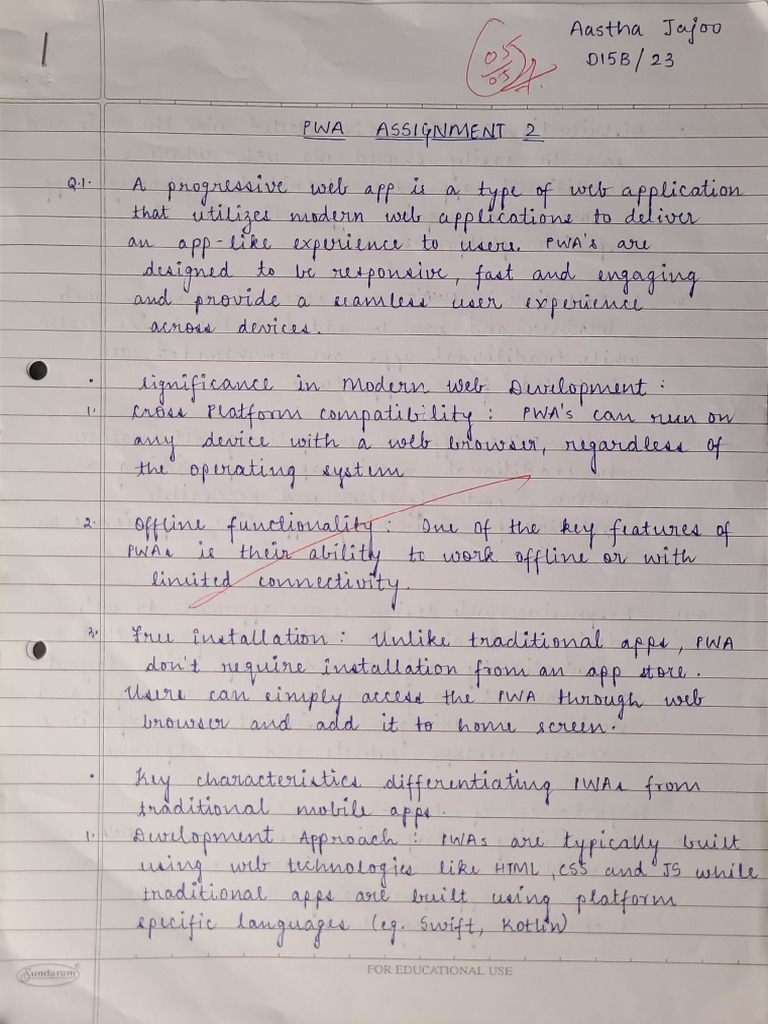 1
Aastha Jajoo
05/05
D15B/23
PWA ASSIGNMENT 2
Q.1. A progressive web app is a type of web application
that utilizes modern web applications to deliver
an app-like experience to users. PWA's are
designed to be responsive, fast and engaging
and provide a seamless user experience
across devices.
• Significance in Modern Web Development :
1. Cross Platform compatibility : PWA's can run on
any device with a web browser, regardless of
the operating system
2. Offline functionality : One of the key features of
PWAs is their ability to work offline or with
limited connectivity.
3. Free installation : Unlike traditional apps, PWA
don't require installation from an app store.
Users can simply access the PWA through web
browser and add it to home screen.
• Key characteristics differentiating PWAs from
traditional mobile apps.
1. Development Approach : PWAs are typically built
using web technologies like HTML, CSS and JS while
traditional apps are built using platform
specific languages (eg. Swift, Kotlin)
Sundaram
FOR EDUCATIONAL USE